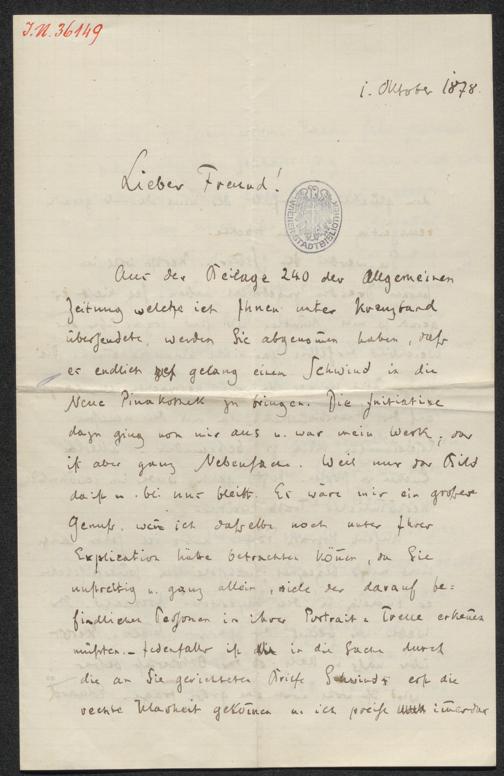 I.N. 36149
1. Oktober 1878.
Lieber Freund!
WIENER STADTBIBLIOTHEK
Aus der Beilage 240 der Allgemeinen
Zeitung welche ich Ihnen unter Kreuzband
übersendete, werden Sie abgenom̄en haben, daſs
es endlich gelang einen Schwind in die
Neue Pinakothek zu bringen. Die Initiative
dazu ging von mir aus u. war mein Werk, das
ist aber ganz Nebensache. Weil nur das Bild
da ist u. bei uns bleibt. Es wäre mir ein groſser
Genuſs, wen̄ ich daſselbe noch unter Ihrer
Explication hätte betrachten kön̄en, da Sie
unstreitig u. ganz allein, viele der darauf be=
findlichen Personen in ihrer Portrait erken̄en
müſsten. – Jedenfalls ist in die Sache durch
die an Sie gerichteten Briefe Schwinds erst die
rechte Klarheit gekom̄en u. ich preiſe im̄erdar